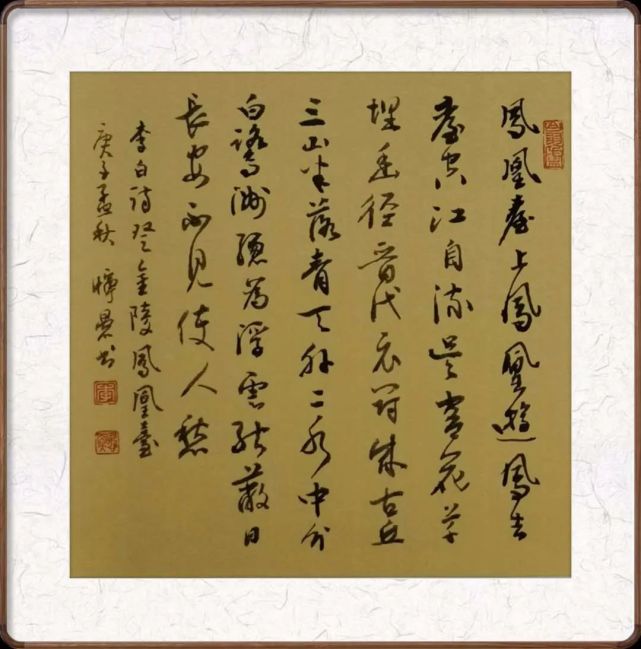 鳳凰臺上鳳凰遊鳳去
臺空江自流吳宮花草
埋幽徑晉代衣冠成古丘
三山半落青天外二水中分
白鷺洲總為浮雲能蔽日
長安不見使人愁
李白詩登金陵鳳凰臺
庚子孟秋 書